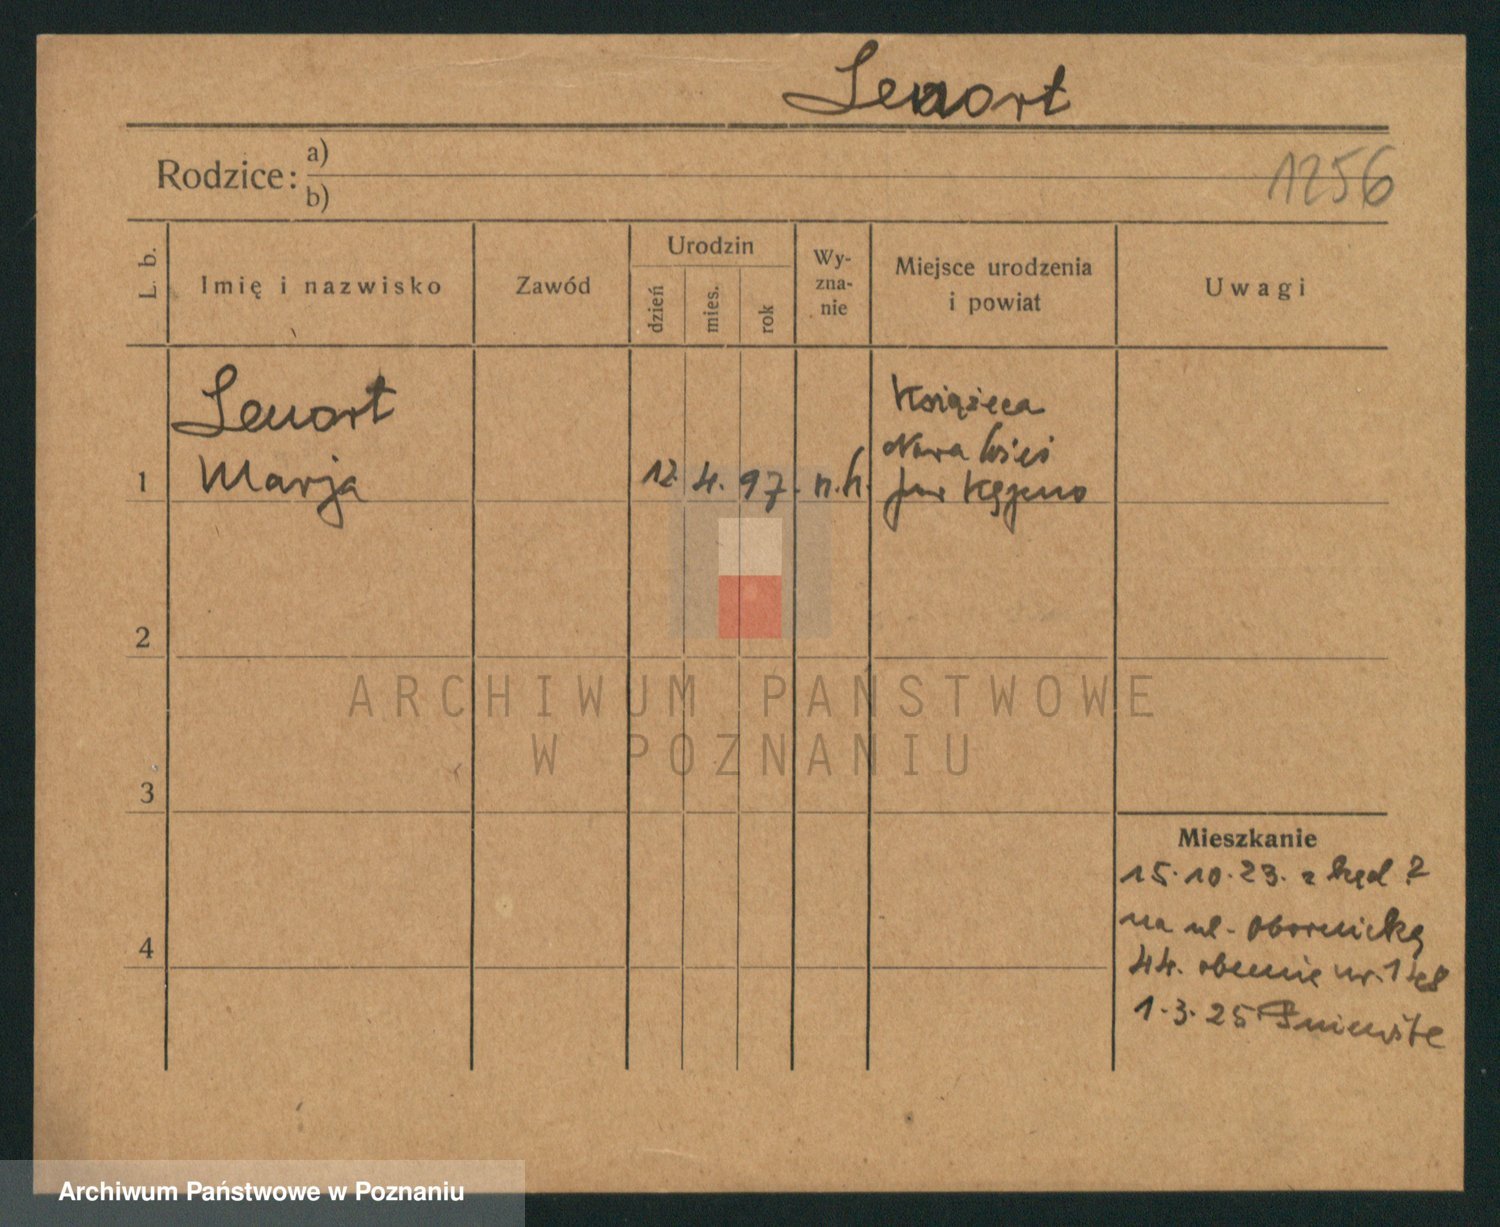 Lenart
Rodzice:
a)
b)
1256
L. b.
Imię i nazwisko
Zawód
Urodzin
dzień
mies.
rok
Wy-
zna-
nie
Miejsce urodzenia
i powiat
Uwagi
Lenart
Książęca
Nowa Wieś
1 Marja 12. 4. 97. Kępno
2
ARCHIWUM PAŃSTWOWE
W POZNANIU
3
Mieszkanie
15.10.23. z kąd ?
na ul. Obornicką
4
44. obecnie nr.
1.3.25
Archiwum Państwowe w Poznaniu